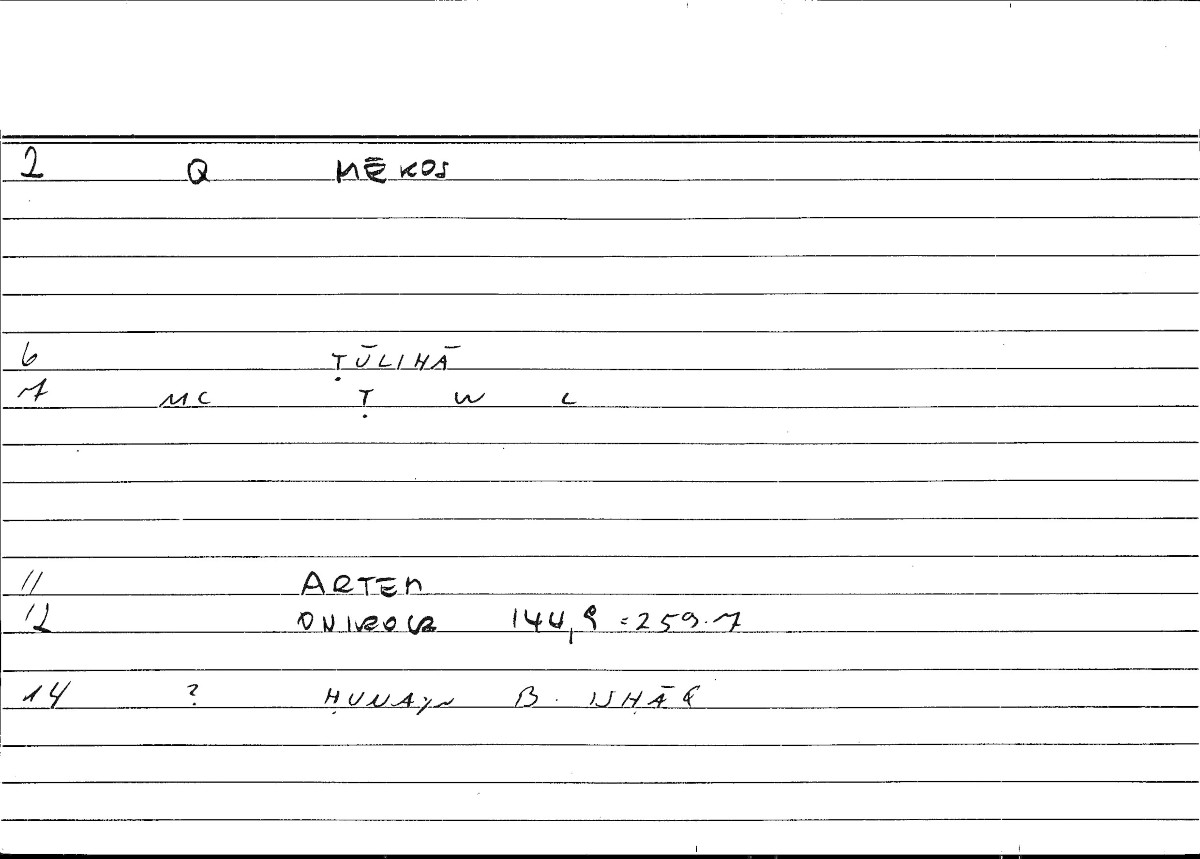 2 Q MĒKOS
6 ṬŪLIHĀ
7 MC Ṭ W L
11 ARTEM
12 ONIROCR 144,9 = 259.7
14 ? ḤUNAYN B. ISḤĀQ